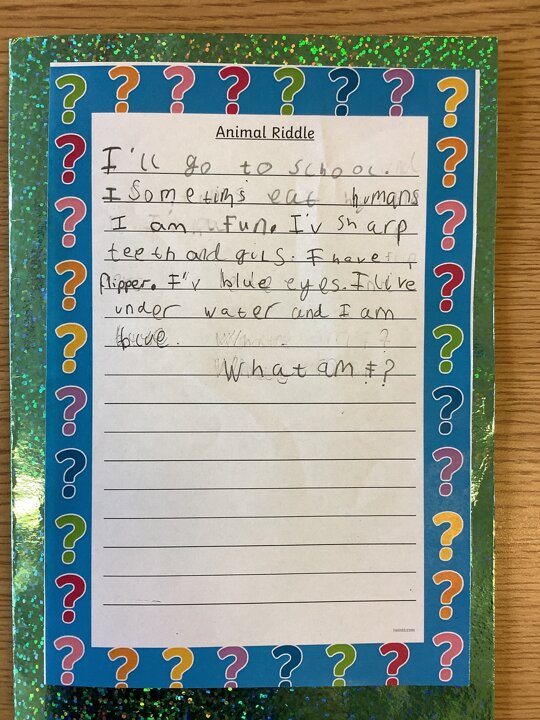 Animal Riddle
I'll go to school.
I Sometims eat humans
I am fun. I'v sharp
teeth and gils. I have
flipper. I'v blue eyes. I live
under water and I am
blue.
What am I?